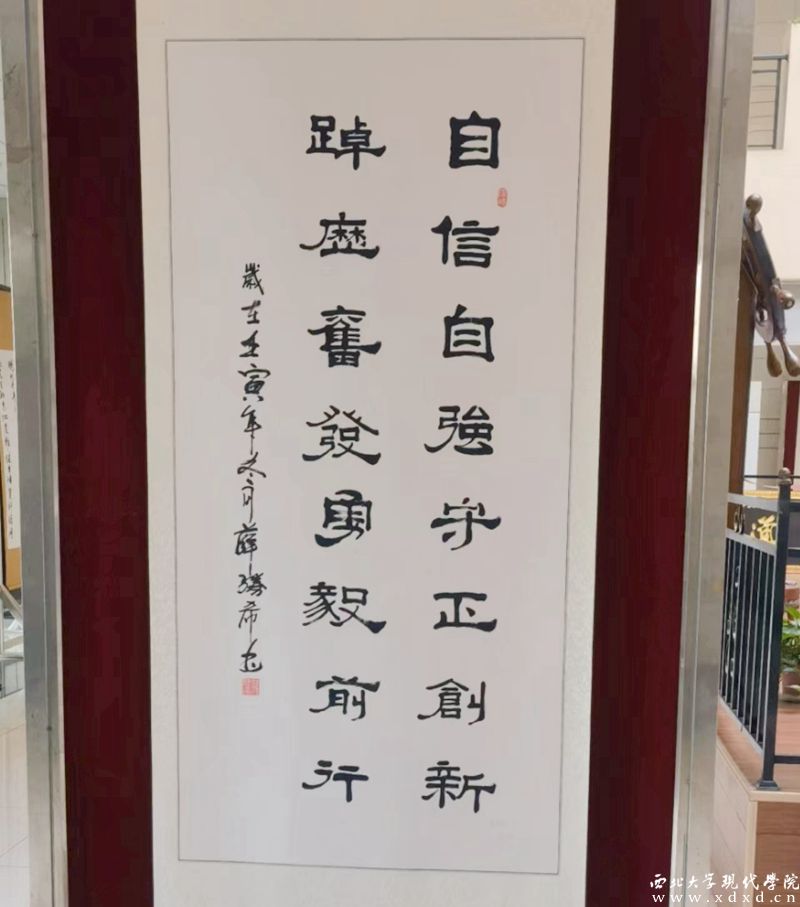 自信自強守正創新
踔歷奮發勇毅前行
歲在壬寅年冬月薛勝希書
道
西北大学现代学院
www.xdxd.cn